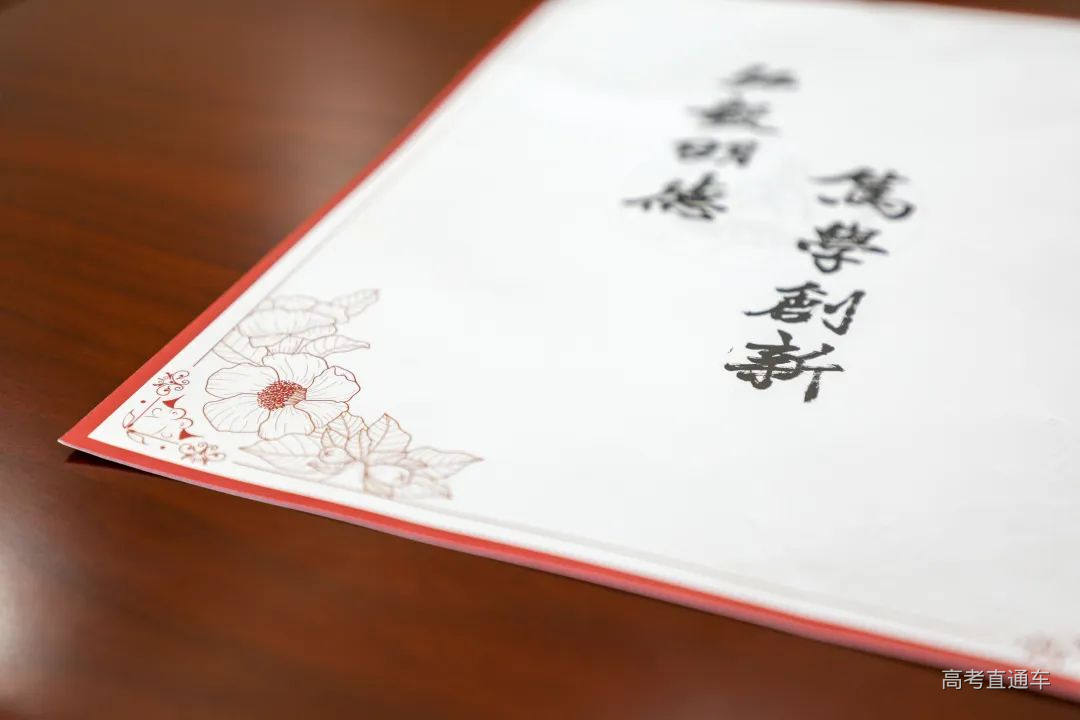 弘毅明德
篤學創新
高考直通车